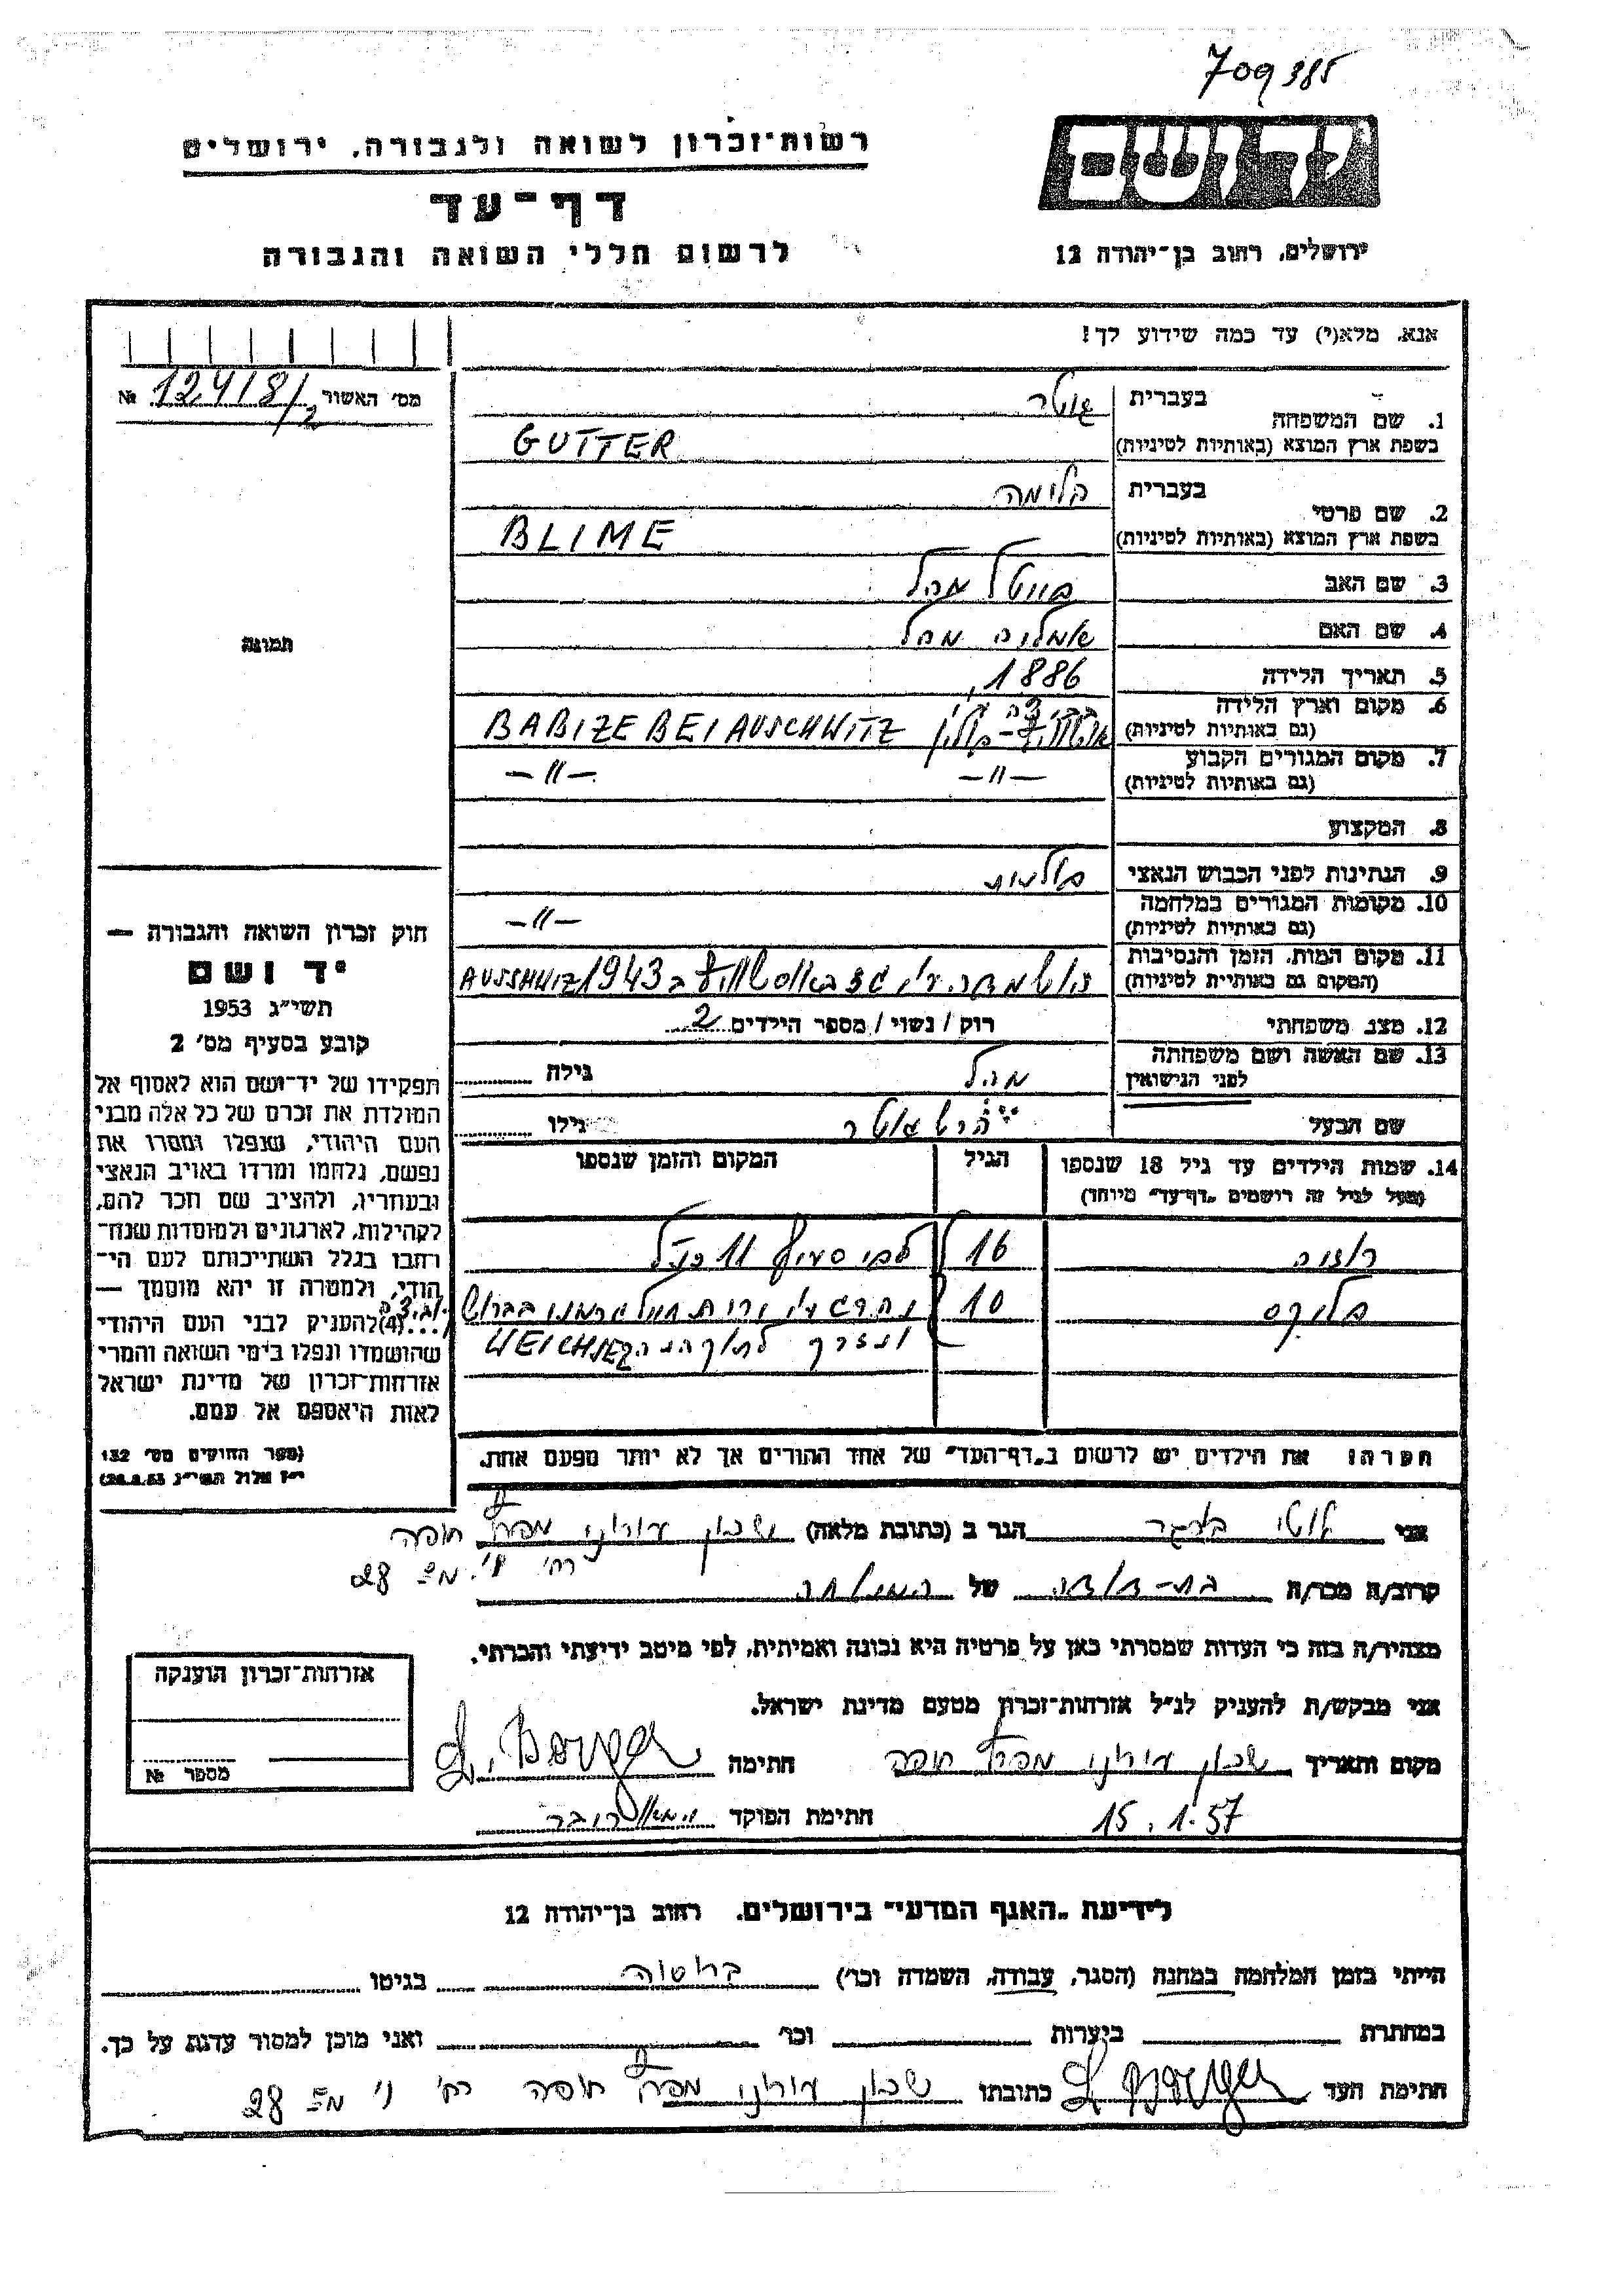 709385
רשות־זכרון לשואה ולגבורה, ירושלים
יד ושם
דף־עד
לרשום חללי השואה והגבורה
ירושלים, רחוב בן־יהודה 12
אנא, מלא(י) עד כמה שידוע לך!
מס׳ האשור № 12418/2
תמונה
1. שם המשפחה
בעברית גוטר
בשפת ארץ המוצא (באותיות לטיניות) GUTTER
2. שם פרטי
בעברית בלימה
בשפת ארץ המוצא (באותיות לטיניות) BLIME
3. שם האב מהל
4. שם האם אמליה מהל
5. תאריך הלידה 1886
6. מקום וארץ הלידה
(גם באותיות לטיניות) BABIZE BEI AUSCHWITZ
7. מקום המגורים הקבוע —״— —״—
(גם באותיות לטיניות)
8. המקצוע
9. הנתינות לפני הכבוש הנאצי פולנית
10. מקומות המגורים במלחמה —״—
(גם באותיות לטיניות)
11. מקום המות, הזמן והנסיבות
(המקום גם באותיות לטיניות) הושמדה ע״י גז באושוויץ ב 1943 AUSSHWIZ
12. מצב משפחתי רוק / נשוי / מספר הילדים 2
13. שם האשה ושם משפחתה
לפני הנישואין מהל גילה
שם הבעל גוטר גילו
14. שמות הילדים עד גיל 18 שנספו הגיל המקום והזמן שנספו
(מעל לגיל זה רושמים „דף־עד״ מיוחד)
רוזה 16 לפי סעיף 11 כנ״ל
10 נהרג ע״י
ונזרק WEICHSEL
הערה: את הילדים יש לרשום ב„דף־העד״ של אחד ההורים אך לא יותר מפעם אחת.
חוק זכרון השואה והגבורה —
יד ושם
תשי״ג 1953
קובע בסעיף מס׳ 2
תפקידו של יד־ושם הוא לאסוף אל
המולדת את זכרם של כל אלה מבני
העם היהודי, שנפלו ומסרו את
נפשם, נלחמו ומרדו באויב הנאצי
ובעוזריו, ולהציב שם וזכר להם,
לקהילות, לארגונים ולמוסדות שנח־
רבו בגלל השתייכותם לעם הי־
הודי, ולמטרה זו יהא מוסמך —
...(4) להעניק לבני העם היהודי
שהושמדו ונפלו בימי השואה והמרי
אזרחות־זכרון של מדינת ישראל
לאות היאספם אל עמם.
(ספר החוקים מס׳ 132
י״ז אלול תשי״ג 28.8.53)
אני אוטי ברגר הגר ב (כתובת מלאה) שכון עירוני מפרץ חיפה
רח׳ מס 28
קרוב/ה מכר/ה בת-דודה של
מצהיר/ה בזה כי העדות שמסרתי כאן על פרטיה היא נכונה ואמיתית, לפי מיטב ידיעתי והכרתי.
אני מבקש/ת להעניק לנ״ל אזרחות־זכרון מטעם מדינת ישראל.
מקום ותאריך שכון עירוני מפרץ חיפה חתימה L. Berger
15.1.57 חתימת הפוקד
אזרחות־זכרון הוענקה
מספר №
לידיעת „האגף המדעי״ בירושלים, רחוב בן־יהודה 12
הייתי בזמן המלחמה במחנה (הסגר, עבודה, השמדה וכו׳) בגיטו
במחתרת ביערות וכו׳ ואני מוכן למסור עדות על כך.
חתימת העד L Berger כתובתו שכון עירוני מפרץ חיפה רח׳ מס 28